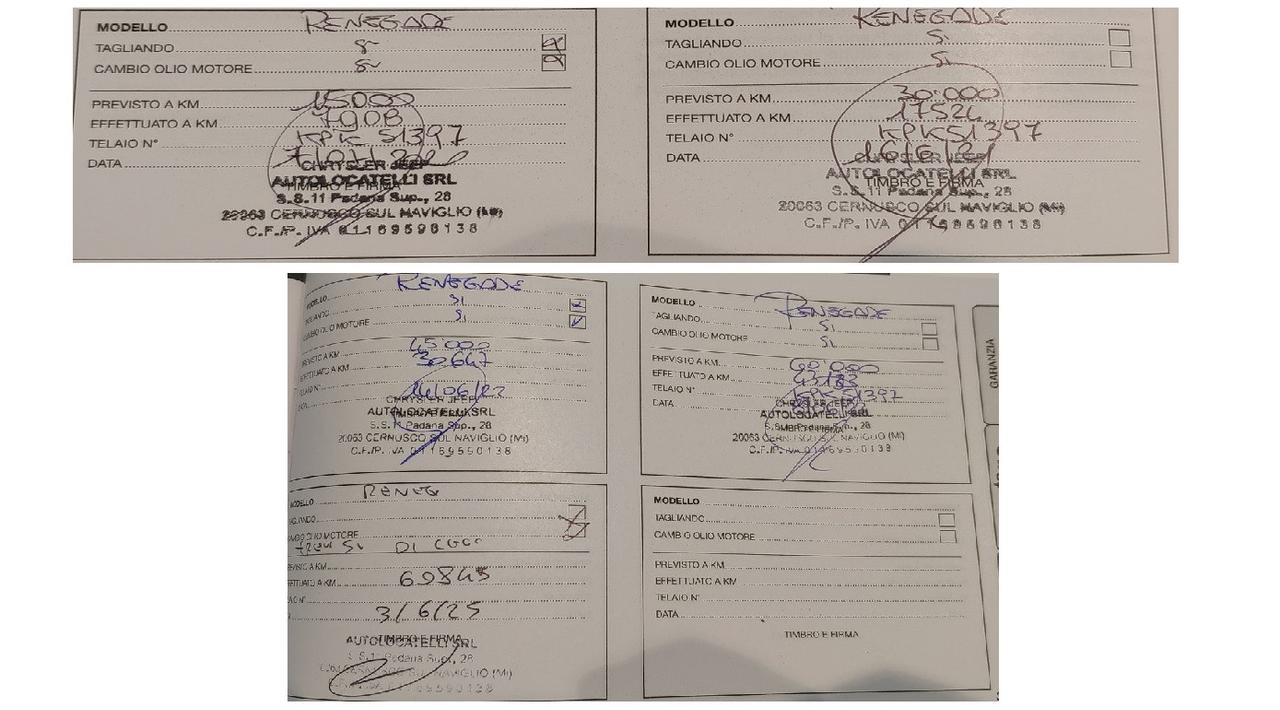 MODELLO RENEGADE
TAGLIANDO si
CAMBIO OLIO MOTORE si
PREVISTO A KM 15000
EFFETTUATO A KM 7908
TELAIO N° KPK 51397
DATA
CHRYSLER JEEP
AUTOLOCATELLI SRL
TIMBRO E FIRMA
S.S.11 Padana Sup., 28
20063 CERNUSCO SUL NAVIGLIO (MI)
C.F./P. IVA 01169590138
MODELLO RENEGADE
TAGLIANDO Si
CAMBIO OLIO MOTORE Si
PREVISTO A KM 30.000
EFFETTUATO A KM 17524
TELAIO N° KPK51397
DATA 16/6/21
CHRYSLER JEEP
AUTOLOCATELLI SRL
TIMBRO E FIRMA
S.S.11 Padana Sup., 28
20063 CERNUSCO SUL NAVIGLIO (MI)
C.F./P. IVA 01169590138
MODELLO RENEGADE
TAGLIANDO Si
CAMBIO OLIO MOTORE Si
PREVISTO A KM 45000
EFFETTUATO A KM 30647
TELAIO N°
14/06/22
CHRYSLER JEEP
AUTOLOCATELLI SRL
TIMBRO E FIRMA
S.S.11 Padana Sup., 28
20063 CERNUSCO SUL NAVIGLIO (MI)
C.F./P. IVA 01169590138
MODELLO RENEGADE
TAGLIANDO Si
CAMBIO OLIO MOTORE Si
PREVISTO A KM 60.000
EFFETTUATO A KM
TELAIO N° KPK51397
DATA
CHRYSLER JEEP
AUTOLOCATELLI SRL
TIMBRO E FIRMA
S.S.11 Padana Sup., 28
20063 CERNUSCO SUL NAVIGLIO (MI)
C.F./P. IVA 01169590138
GARANZIA
MODELLO RENEG
AGLIANDO
MBIO OLIO MOTORE
DI
EVISTO A KM
FETTUATO A KM 60845
AIO N°
3/6/25
TIMBRO E FIRMA
AUTOLOCATELLI SRL
S.S.11 Padana Sup., 28
SUL NAVIGLIO (MI)
IVA 01169590138
MODELLO
TAGLIANDO
CAMBIO OLIO MOTORE
PREVISTO A KM
EFFETTUATO A KM
TELAIO N°
DATA
TIMBRO E FIRMA